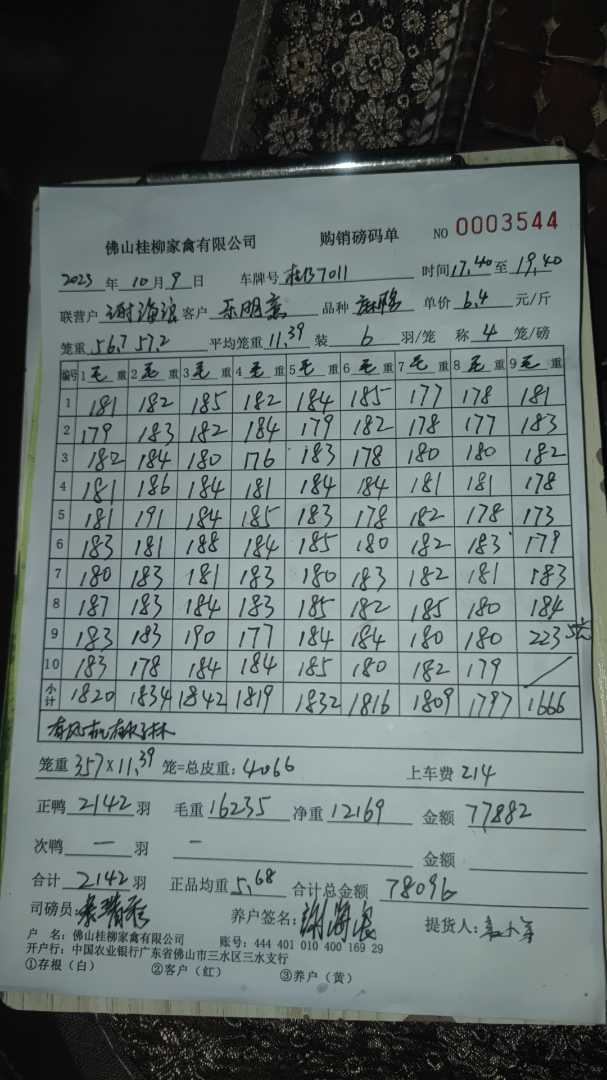 佛山桂柳家禽有限公司 购销磅码单 NO 0003544
2023年10月9日 车牌号 7011 时间17,40至19,40
联营户 谢海浪 客户 品种 单价6,4元/斤
笼重56,7 57,2 平均笼重11,39 装6羽/笼 称4笼/磅
编号 1毛重 2毛重 3毛重 4毛重 5毛重 6毛重 7毛重 8毛重 9毛重
1 181 182 185 182 184 185 177 178 181
2 179 183 182 184 179 182 178 177 183
3 182 184 180 176 183 178 180 180 182
4 181 186 184 181 184 184 181 181 178
5 181 191 184 185 183 178 182 178 173
6 183 181 188 184 185 180 182 183 179
7 180 183 181 183 180 183 182 181 183
8 187 183 184 183 185 182 185 180 184
9 183 183 190 177 184 184 180 180 223 5笼
10 183 178 184 184 185 180 182 179 /
小计 1820 1834 1842 1819 1832 1816 1809 1797 1666
笼重357×11,39笼=总皮重:4066 上车费214
正鸭2142羽 毛重16235 净重12169 金额77882
次鸭—羽 — 金额
合计2142羽 正品均重5,68 合计总金额78096
司磅员: 养户签名:谢海浪 提货人:
户 名:佛山桂柳家禽有限公司 账号:444 401 010 400 169 29
开户行:中国农业银行广东省佛山市三水区三水支行
①存根(白) ②客户(红) ③养户(黄)